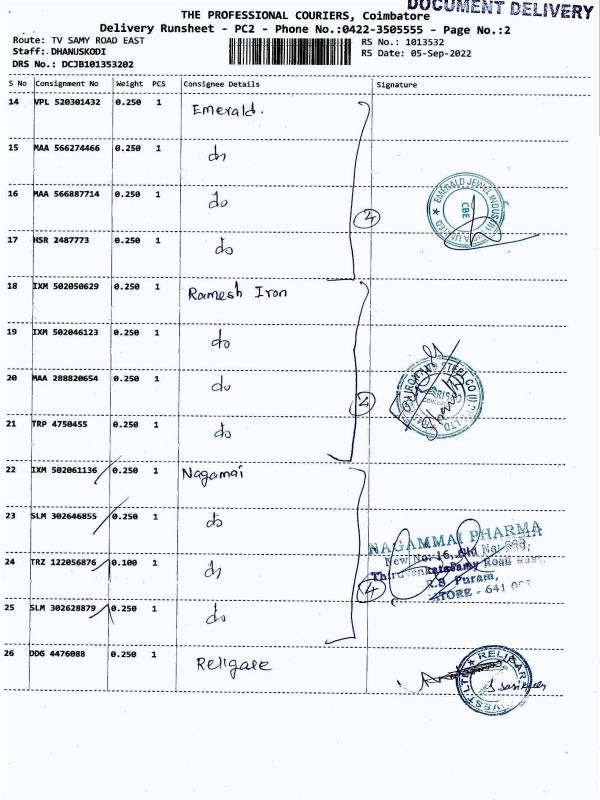 DOCUMENT DELIVERY
THE PROFESSIONAL COURIERS, Coimbatore
Delivery Runsheet - PC2 - Phone No.:0422-3505555 - Page No.:2
Route: TV SAMY ROAD EAST
RS No.: 1013532
Staff: DHANUSKODI
RS Date: 05-Sep-2022
DRS No.: DCJB101353202
S No Consignment No Weight PCS Consignee Details Signature
14 VPL 520301432 0.250 1 Emerald.
15 MAA 566274466 0.250 1 do
16 MAA 566887714 0.250 1 do
17 HSR 2487773 0.250 1 do
EMERALD JEWEL INDUSTRY
CBE
18 IXM 502050629 0.250 1 Ramesh Iron
19 IXM 502046123 0.250 1 do
20 MAA 288820654 0.250 1 do
21 TRP 4750455 0.250 1 do
IRON STEEL CO (I) PVT LTD
22 IXM 502061136 0.250 1 Nagamai
23 SLM 302646855 0.250 1 do
24 TRZ 122056876 0.100 1 do
25 SLM 302628879 0.250 1 do
4
NAGAMMAI PHARMA
New No: 16, Old No:
Thiruvenkatasamy Road East
R.S Puram,
26 DDG 4476088 0.250 1 Religare
RELIGARE